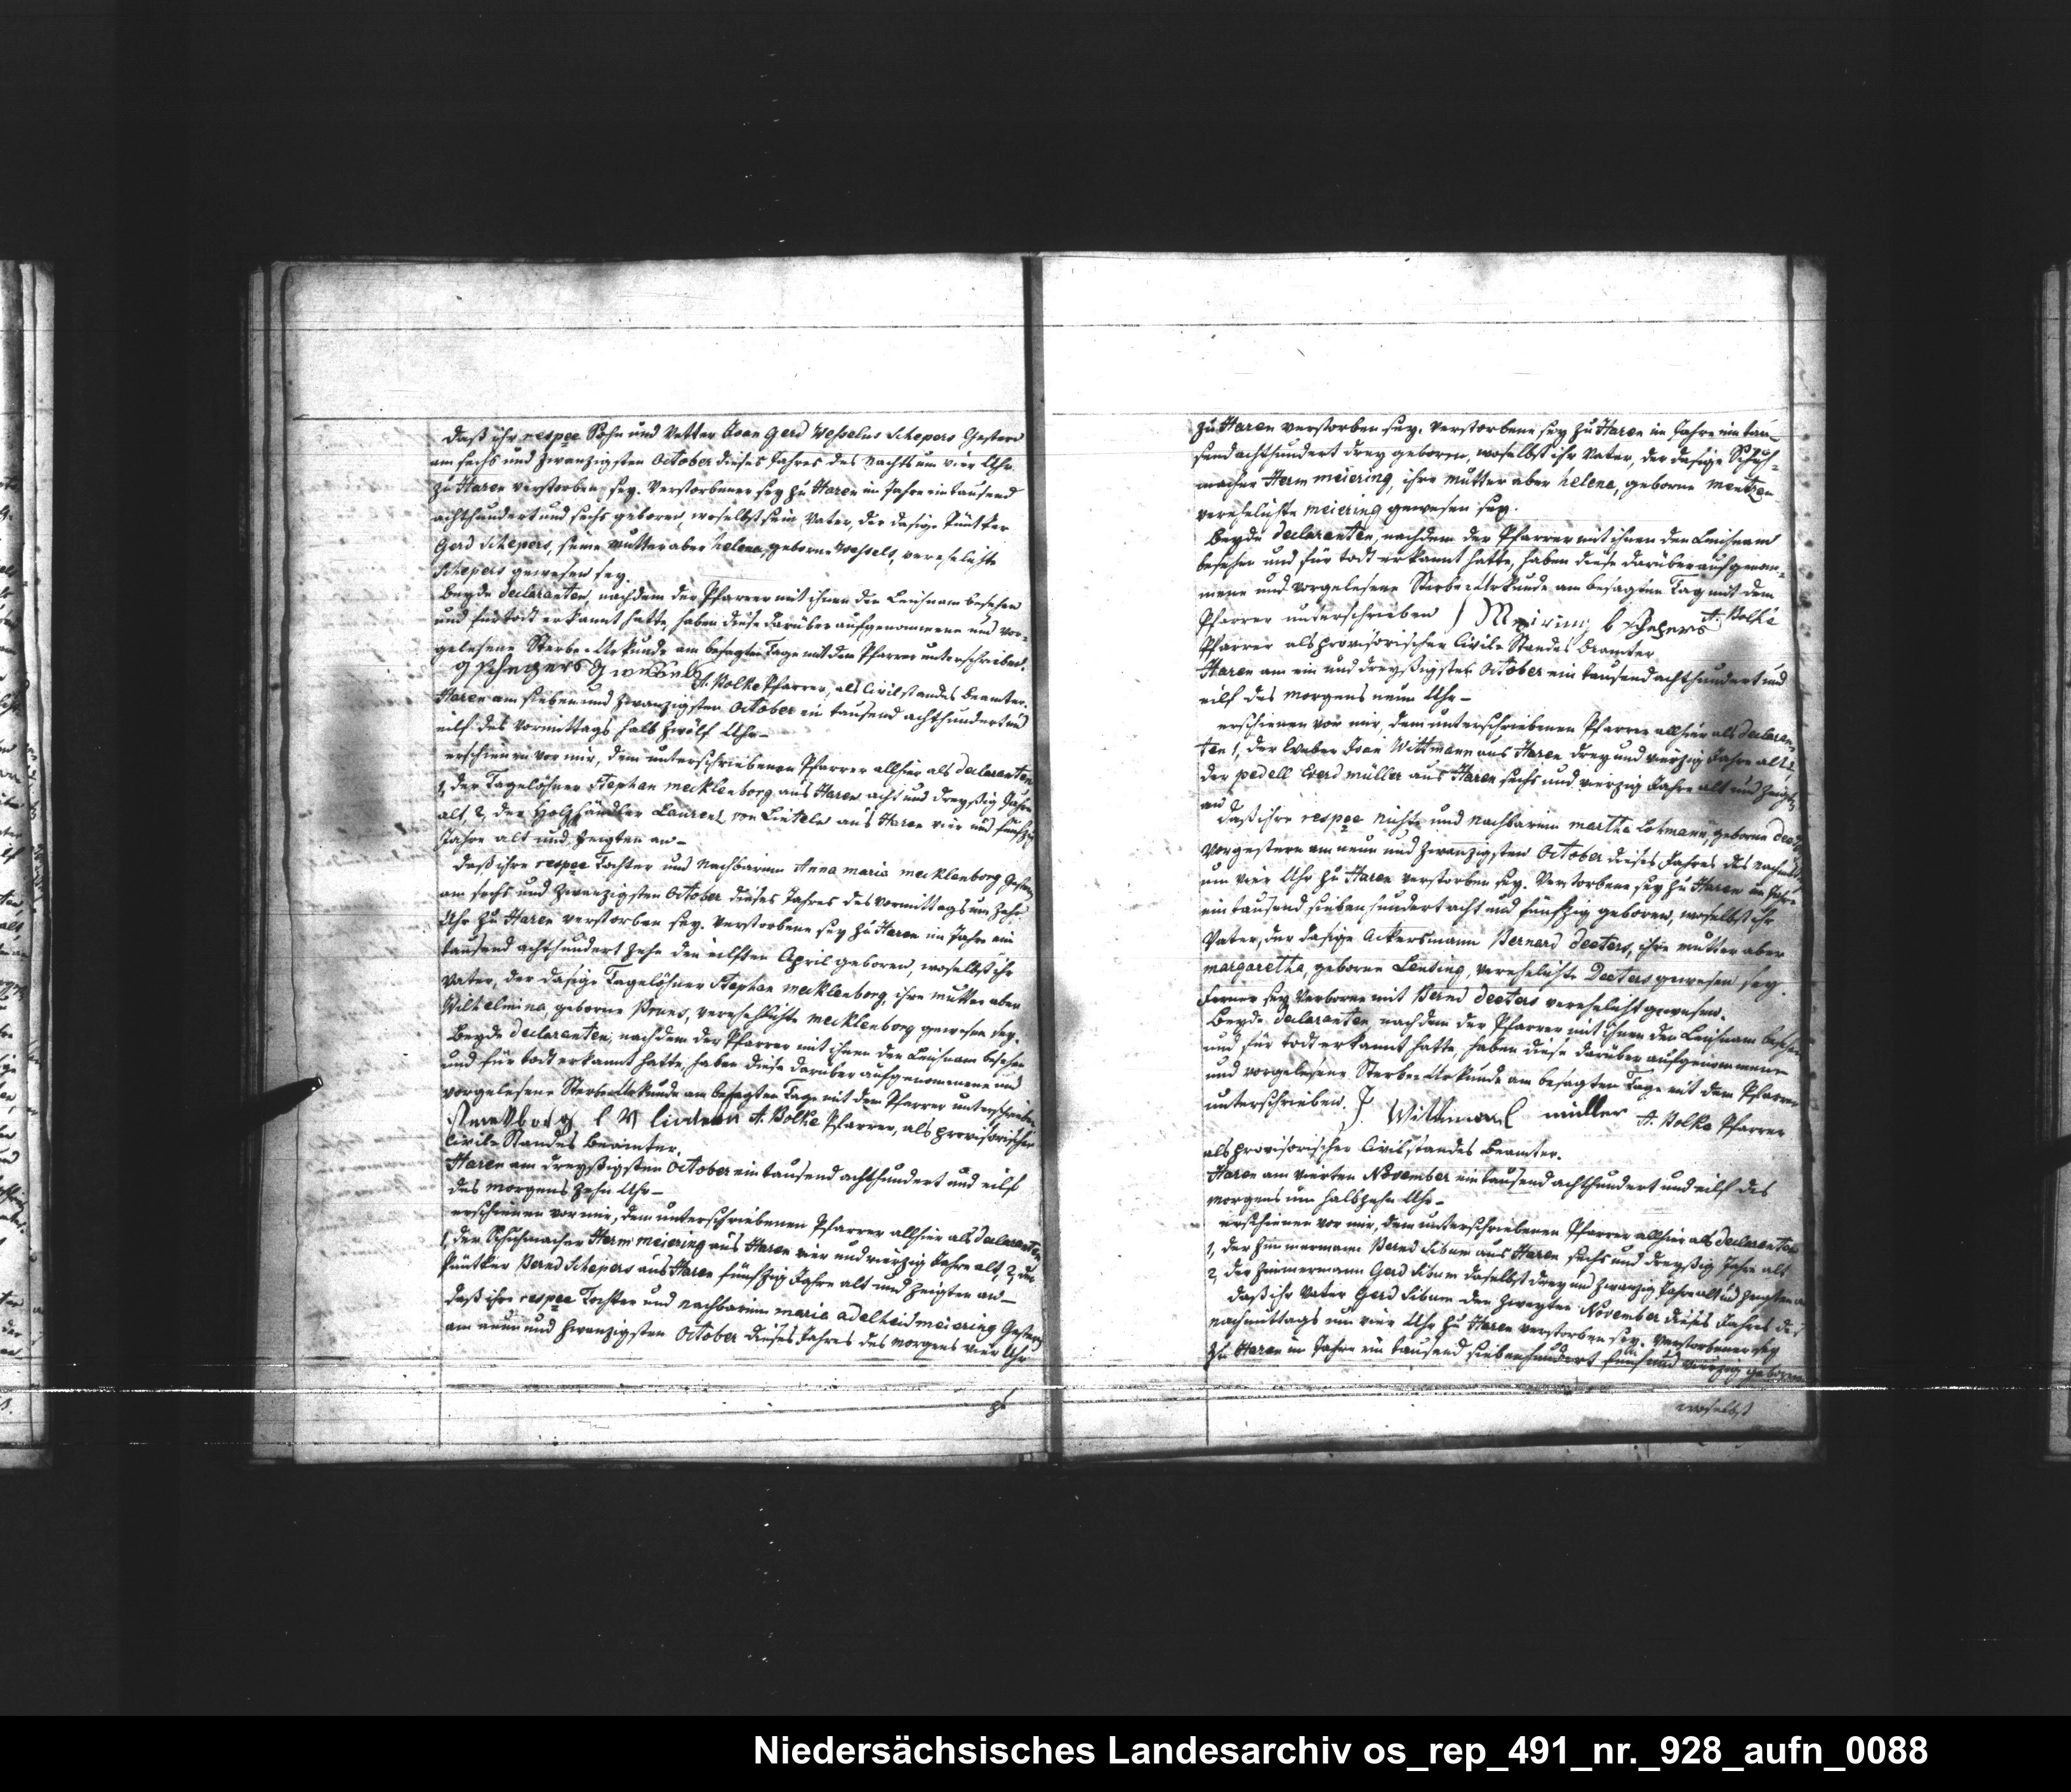 daß ihr respee Sohn und Vetter Joan Gerd Wesselus Schepers Gestern
am sechs und zwanzigsten October dieses Jahres des Nachts um vier Uhr
zu Haren verstorben sey. Verstorbener sey zu Haren im Jahre ein tausend
achthundert und sechs geboren, woselbst sein Vater, der dasige Püntker
Gerd Schepers, seine Mutter aber helena, geborne Wessels, verehelichte
Schepers gewesen sey.
Beyde declaranten, nachdem der Pfarrer mit ihnen den Leichnam besehen
und für todt erkannt hatte, haben diese darüber aufgenommene und vor-
gelesene Sterbe-Urkunde am besagten Tage mit dem Pfarrer unterschrieben.
g schepers A. Bolke Pfarrer, als Civilstandes Beamter.
Haren am sieben und zwanzigsten October ein tausend achthundert und
eilf des Vormittags halb zwölf Uhr –
erschienen vor mir, dem unterschriebenen Pfarrer allhier als declaranten
1, der Tagelöhner Stephan mecklenborg aus Haren acht und dreyßig Jahre
alt 2, der Holzhändler Laurenz von Lintelo aus Haren vier und fünfzig
Jahre alt und zeigten an –
daß ihre respee Tochter und Nachbarinn Anna maria mecklenborg Gestern
am sechs und zwanzigsten October dieses Jahres des Vormittags um zehn
Uhr zu Haren verstorben sey. Verstorbene sey zu Haren im Jahre ein
tausend achthundert zehn den eilften April geboren, woselbst ihr
Vater, der dasige Tagelöhner Stephan mecklenborg, ihre Mutter aber
Wilhelmina geborne Pruns, verehelichte mecklenborg gewesen sey.
Beyde declaranten, nachdem der Pfarrer mit ihnen den Leichnam besehen
und für todt erkannt hatte, haben diese darüber aufgenommene und
vorgelesene Sterbe-Urkunde am besagten Tage mit dem Pfarrer unterschrieben
A. Bolke Pfarrer, als provisorischer
Civil-Standes Beamter.
Haren am dreyßigsten October ein tausend achthundert und eilf
des Morgens zehn Uhr –
erschienen vor mir, dem unterschriebenen Pfarrer allhier als declaranten
1, der Schuhmacher Herm meiering aus Haren vier und vierzig Jahre alt, 2, der
Püntker Bernd Schepers aus Haren fünfzig Jahre alt und zeigten an –
daß ihre respee Tochter und Nachbarinn maria adelheid meiering Gestern
am neun und zwanzigsten October dieses Jahres des Morgens vier Uhr
zu Haren verstorben sey. Verstorbene sey zu Haren im Jahre ein tau-
send achthundert drey geboren, woselbst ihr Vater, der dasige Schuh-
macher Herm meiering, ihre Mutter aber helena, geborne Mentzen
verehelichte meiering gewesen sey.
Beyde declaranten, nachdem der Pfarrer mit ihnen den Leichnam
besehen und für todt erkannt hatte, haben diese darüber aufgenom-
mene und vorgelesene Sterbe-Urkunde am besagten Tag mit dem
Pfarrer unterschrieben Meiring b schepers A. Bolke
Pfarrer als provisorischer Civil-Standes Beamter
Haren am ein und dreyßigsten October ein tausend achthundert und
eilf des Morgens neun Uhr –
erschienen vor mir, dem unterschriebenen Pfarrer allhier als declaran-
ten 1, der Weber Joan Wittmann aus Haren drey und vierzig Jahre alt 2,
der pedell Everd müller aus Haren sechs und vierzig Jahre alt und zeigten
an
daß ihre respee Nichte und Nachbarinn martha Lohmann, geborne
Vorgestern am neun und zwanzigsten October dieses Jahres des Nachmittags
um vier Uhr zu Haren verstorben sey. Verstorbene sey zu Haren im Jahre
ein tausend sieben hundert acht und fünfzig geboren, woselbst ihr
Vater, der dasige Ackersmann Bernard deeters, ihre Mutter aber
margaretha, geborne Lenting, verehelichte Deeters gewesen sey.
Ferner sey Verstorbene mit Bernd deeters verehelicht gewesen.
Beyde declaranten, nachdem der Pfarrer mit ihnen den Leichnam besehen
und für todt erkannt hatte, haben diese darüber aufgenommene
und vorgelesene Sterbe-Urkunde am besagten Tage mit dem Pfarrer
unterschrieben. J. Wittman müller A. Bolke Pfarrer
als provisorischer Civilstandes Beamter.
Haren am vierten November ein tausend achthundert und eilf des
Morgens um halb zehn Uhr –
erschienen vor mir, dem unterschriebenen Pfarrer allhier als declaranten
1, der Zimmermann Bernd Sibum aus Haren sechs und dreyßig Jahre alt
2, der Zimmermann Gerd Sibum daselbst drey und zwanzig Jahre alt und zeigten an
daß ihr Vater Gerd Sibum den zweyten November dieses Jahres des
Nachmittags um vier Uhr zu Haren verstorben sey. Verstorbener sey
zu Haren im Jahre ein tausend siebenhundert fünf und vierzig geboren
woselbst
Niedersächsisches Landesarchiv os_rep_491_nr._928_aufn_0088